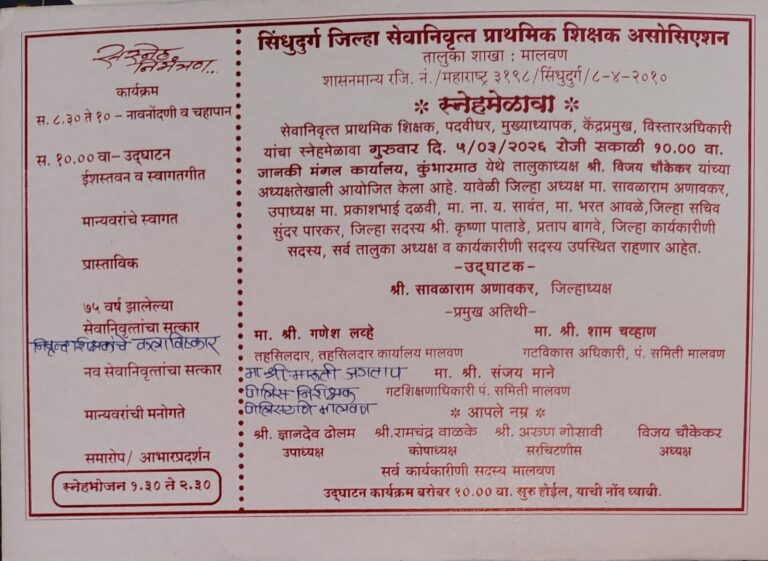 सस्नेह
निमंत्रण...
कार्यक्रम
स. ८.३० ते १० - नावनोंदणी व चहापान
स. १०.०० वा- उद्घाटन
ईशस्तवन व स्वागतगीत
मान्यवरांचे स्वागत
प्रास्ताविक
७५ वर्ष झालेल्या
सेवानिवृत्तांचा सत्कार
निवृत्त शिक्षकांचे कलाविष्कार
नव सेवानिवृत्तांचा सत्कार
मान्यवरांची मनोगते
समारोप/ आभारप्रदर्शन
स्नेहभोजन १.३० ते २.३०
सिंधुदुर्ग जिल्हा सेवानिवृत्त प्राथमिक शिक्षक असोसिएशन
तालुका शाखा : मालवण
शासनमान्य रजि. नं./महाराष्ट्र ३१९८/सिंधुदुर्ग/८-४-२०१०
* स्नेहमेळावा *
सेवानिवृत्त प्राथमिक शिक्षक, पदवीधर, मुख्याध्यापक, केंद्रप्रमुख, विस्तारअधिकारी
यांचा स्नेहमेळावा गुरुवार दि. ५/०३/२०२६ रोजी सकाळी १०.०० वा.
जानकी मंगल कार्यालय, कुंभारमाठ येथे तालुकाध्यक्ष श्री. विजय चौकेकर यांच्या
अध्यक्षतेखाली आयोजित केला आहे. यावेळी जिल्हा अध्यक्ष मा. सावळाराम अणावकर,
उपाध्यक्ष मा. प्रकाशभाई दळवी, मा. ना. य. सावंत, मा. भरत आवळे,जिल्हा सचिव
सुंदर पारकर, जिल्हा सदस्य श्री. कृष्णा पाताडे, प्रताप बागवे, जिल्हा कार्यकारीणी
सदस्य, सर्व तालुका अध्यक्ष व कार्यकारीणी सदस्य उपस्थित राहणार आहेत.
-उद्घाटक-
श्री. सावळाराम अणावकर, जिल्हाध्यक्ष
-प्रमुख अतिथी-
मा. श्री. गणेश लव्हे मा. श्री. शाम चव्हाण
तहसिलदार, तहसिलदार कार्यालय मालवण गटविकास अधिकारी, पं. समिती मालवण
मा श्री. मारुती जगताप मा. श्री. संजय माने
पोलिस निरीक्षक गटशिक्षणाधिकारी पं. समिती मालवण
पोलिसठाणे मालवण * आपले नम्र *
श्री. ज्ञानदेव ढोलम श्री.रामचंद्र वाळके श्री. अरुण गोसावी विजय चौकेकर
उपाध्यक्ष कोषाध्यक्ष सरचिटणीस अध्यक्ष
सर्व कार्यकारीणी सदस्य मालवण
उद्घाटन कार्यक्रम बरोबर १०.०० वा. सुरु होईल, याची नोंद घ्यावी.